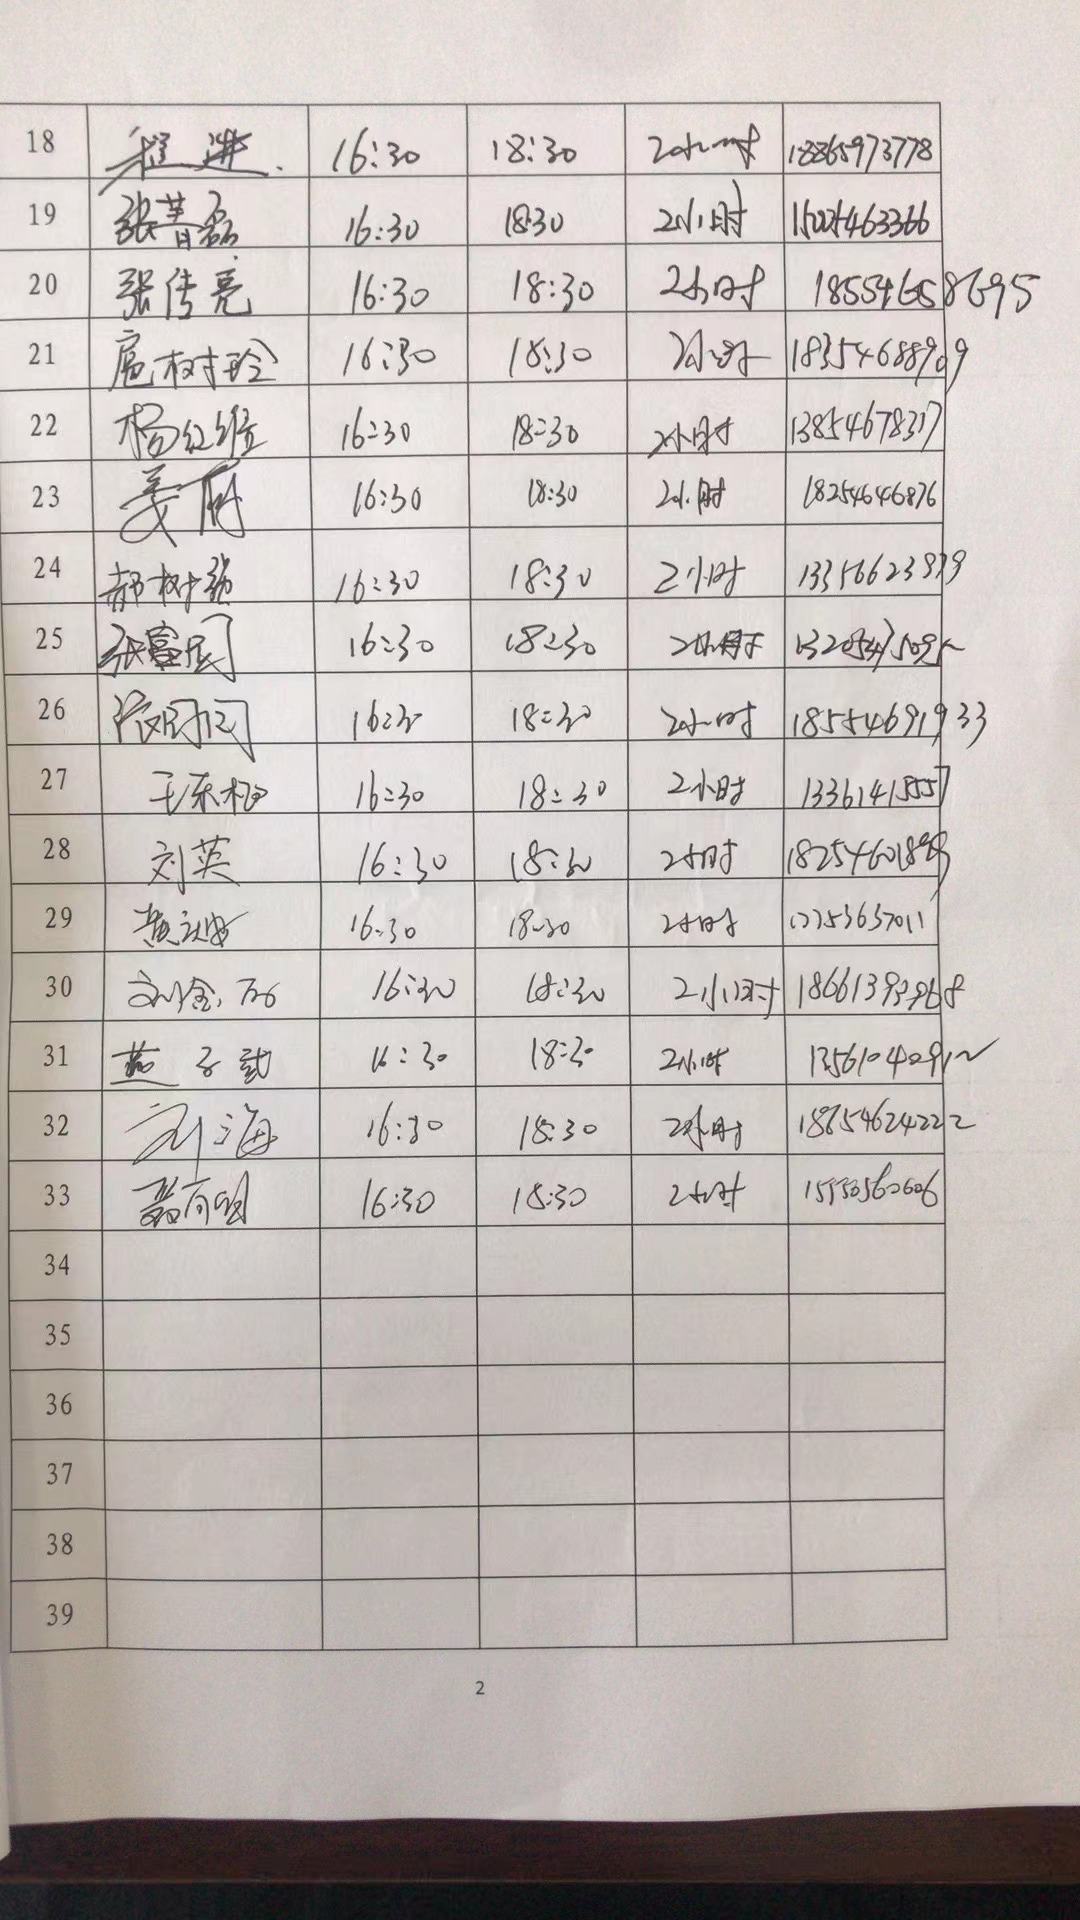 18 程进 16:30 18:30 2小时 18865973778
19 张萻磊 16:30 18:30 2小时 15005463366
20 张传亮 16:30 18:30 2小时 18554658695
21 扈树玲 16:30 18:30 2小时 18354688909
22 杨红维 16:30 18:30 2小时 13854678317
23 姜 16:30 18:30 2小时 18254646876
24 郝树强 16:30 18:30 2小时
25 张富民 16:30 18:30 2小时
26 16:30 18:30 2小时 18554691933
27 王东 16:30 18:30 2小时
28 刘英 16:30 18:30 2小时
29 黄 16:30 18:30 2小时 17753637011
30 刘金 16:30 18:30 2小时
31 燕子 16:30 18:30 2小时
32 刘海 16:30 18:30 2小时 18654624222
33 聂有明 16:30 18:30 2小时 15550560606
34
35
36
37
38
39
2